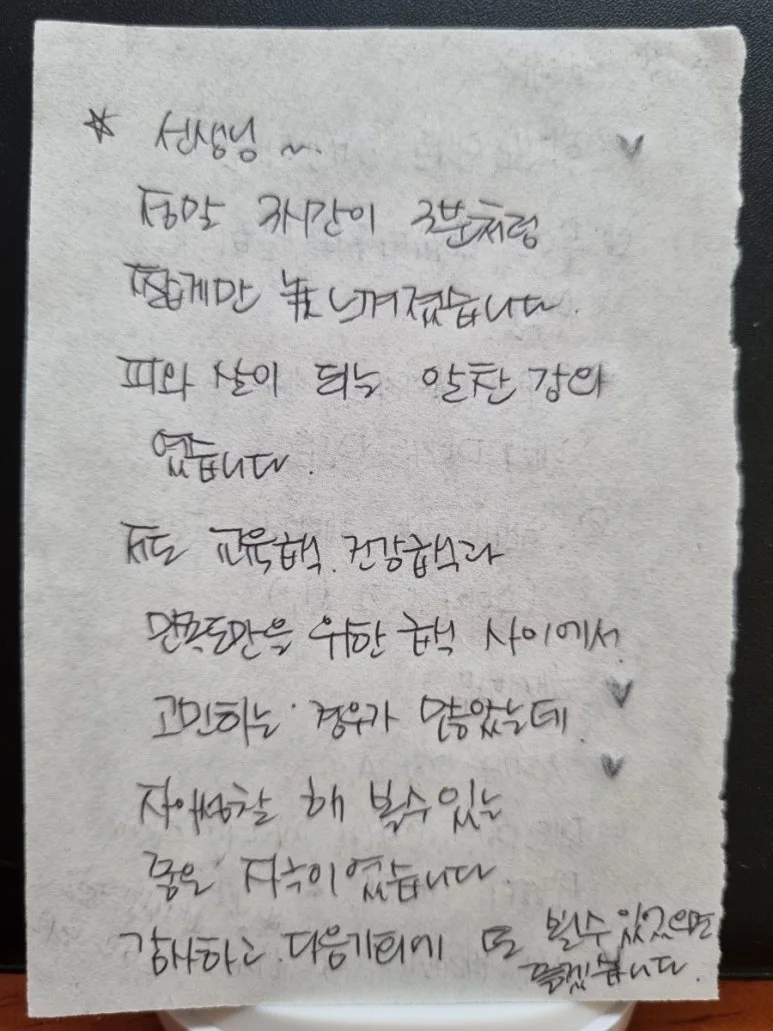 ☆ 선생님 ~..
정말 3시간이 3분처럼
짧게만 느껴졌습니다.
피와 살이 되는 알찬 강의
였습니다.
저도 교육급식, 건강급식과
만족도만을 위한 급식 사이에서
고민하는 경우가 많았는데
자아성찰 해 볼수 있는
좋은 자극이였습니다.
감사하고. 다음기회에 또 뵐수있었으면
좋겠습니다.